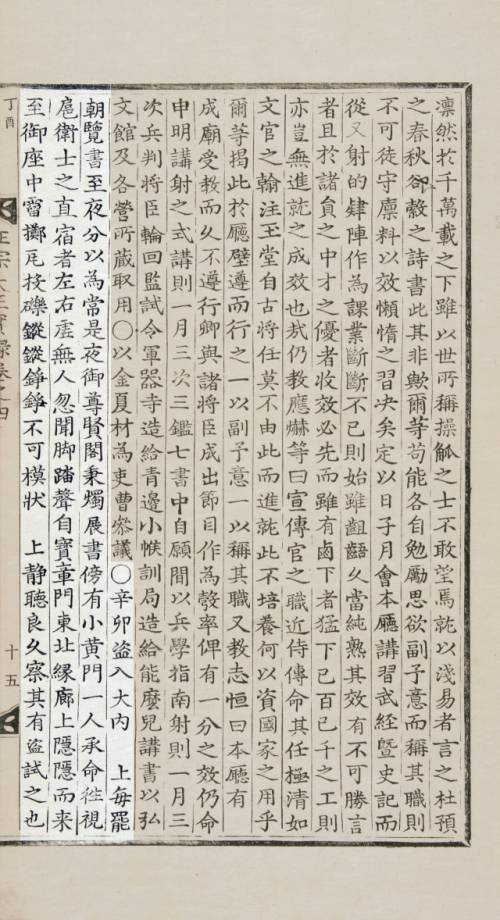 凛然於千萬載之下雖以世所稱操觚之士不敢望焉就以淺易者言之杜預
之春秋郤縠之詩書此其非歟爾等苟能各自勉勵思欲副予意而稱其職則
不可徒守廩料以效懶惰之習决矣定以日子月會本廳講習武經曁史記而
從又射的肄陣作為課業斷斷不已則始雖齟齬久當純熟其效有不可勝言
者且於諸貟之中才之優者收效必先而雖有鹵下者猛下已百已千之工則
亦豈無進就之成效也㢤仍教應爀等曰宣傳官之職近侍傳命其任極清如
文官之翰注玉堂自古將任莫不由此而進就此不培養何以資國家之用乎
爾等揭此於廳壁遵而行之一以副予意一以稱其職又教志恒曰本廳有
成廟受教而久不遵行卿與諸將臣成出節目作為彀率俾有一分之效仍命
申明講射之式講則一月三次三鑑七書中自願間以兵學指南射則一月三
次兵判將臣輪回監試令軍器寺造給青邊小帿訓局造給能麽兒講書以弘
文館及各營所藏取用○以金夏材為吏曹叅議○辛卯盗入大内　上每罷
朝覽書至夜分以為常是夜御尊賢閣秉燭展書傍有小黃門一人承命徃視
扈衛士之直宿者左右虛無人忽聞脚踏聲自寶章門東北縁廊上隱隱而来
至御座中霤擲瓦投礫鏦鏦錚錚不可模狀　上静聽良久察其有盗試之也
丁酉
正宗大王實錄卷之四
十五